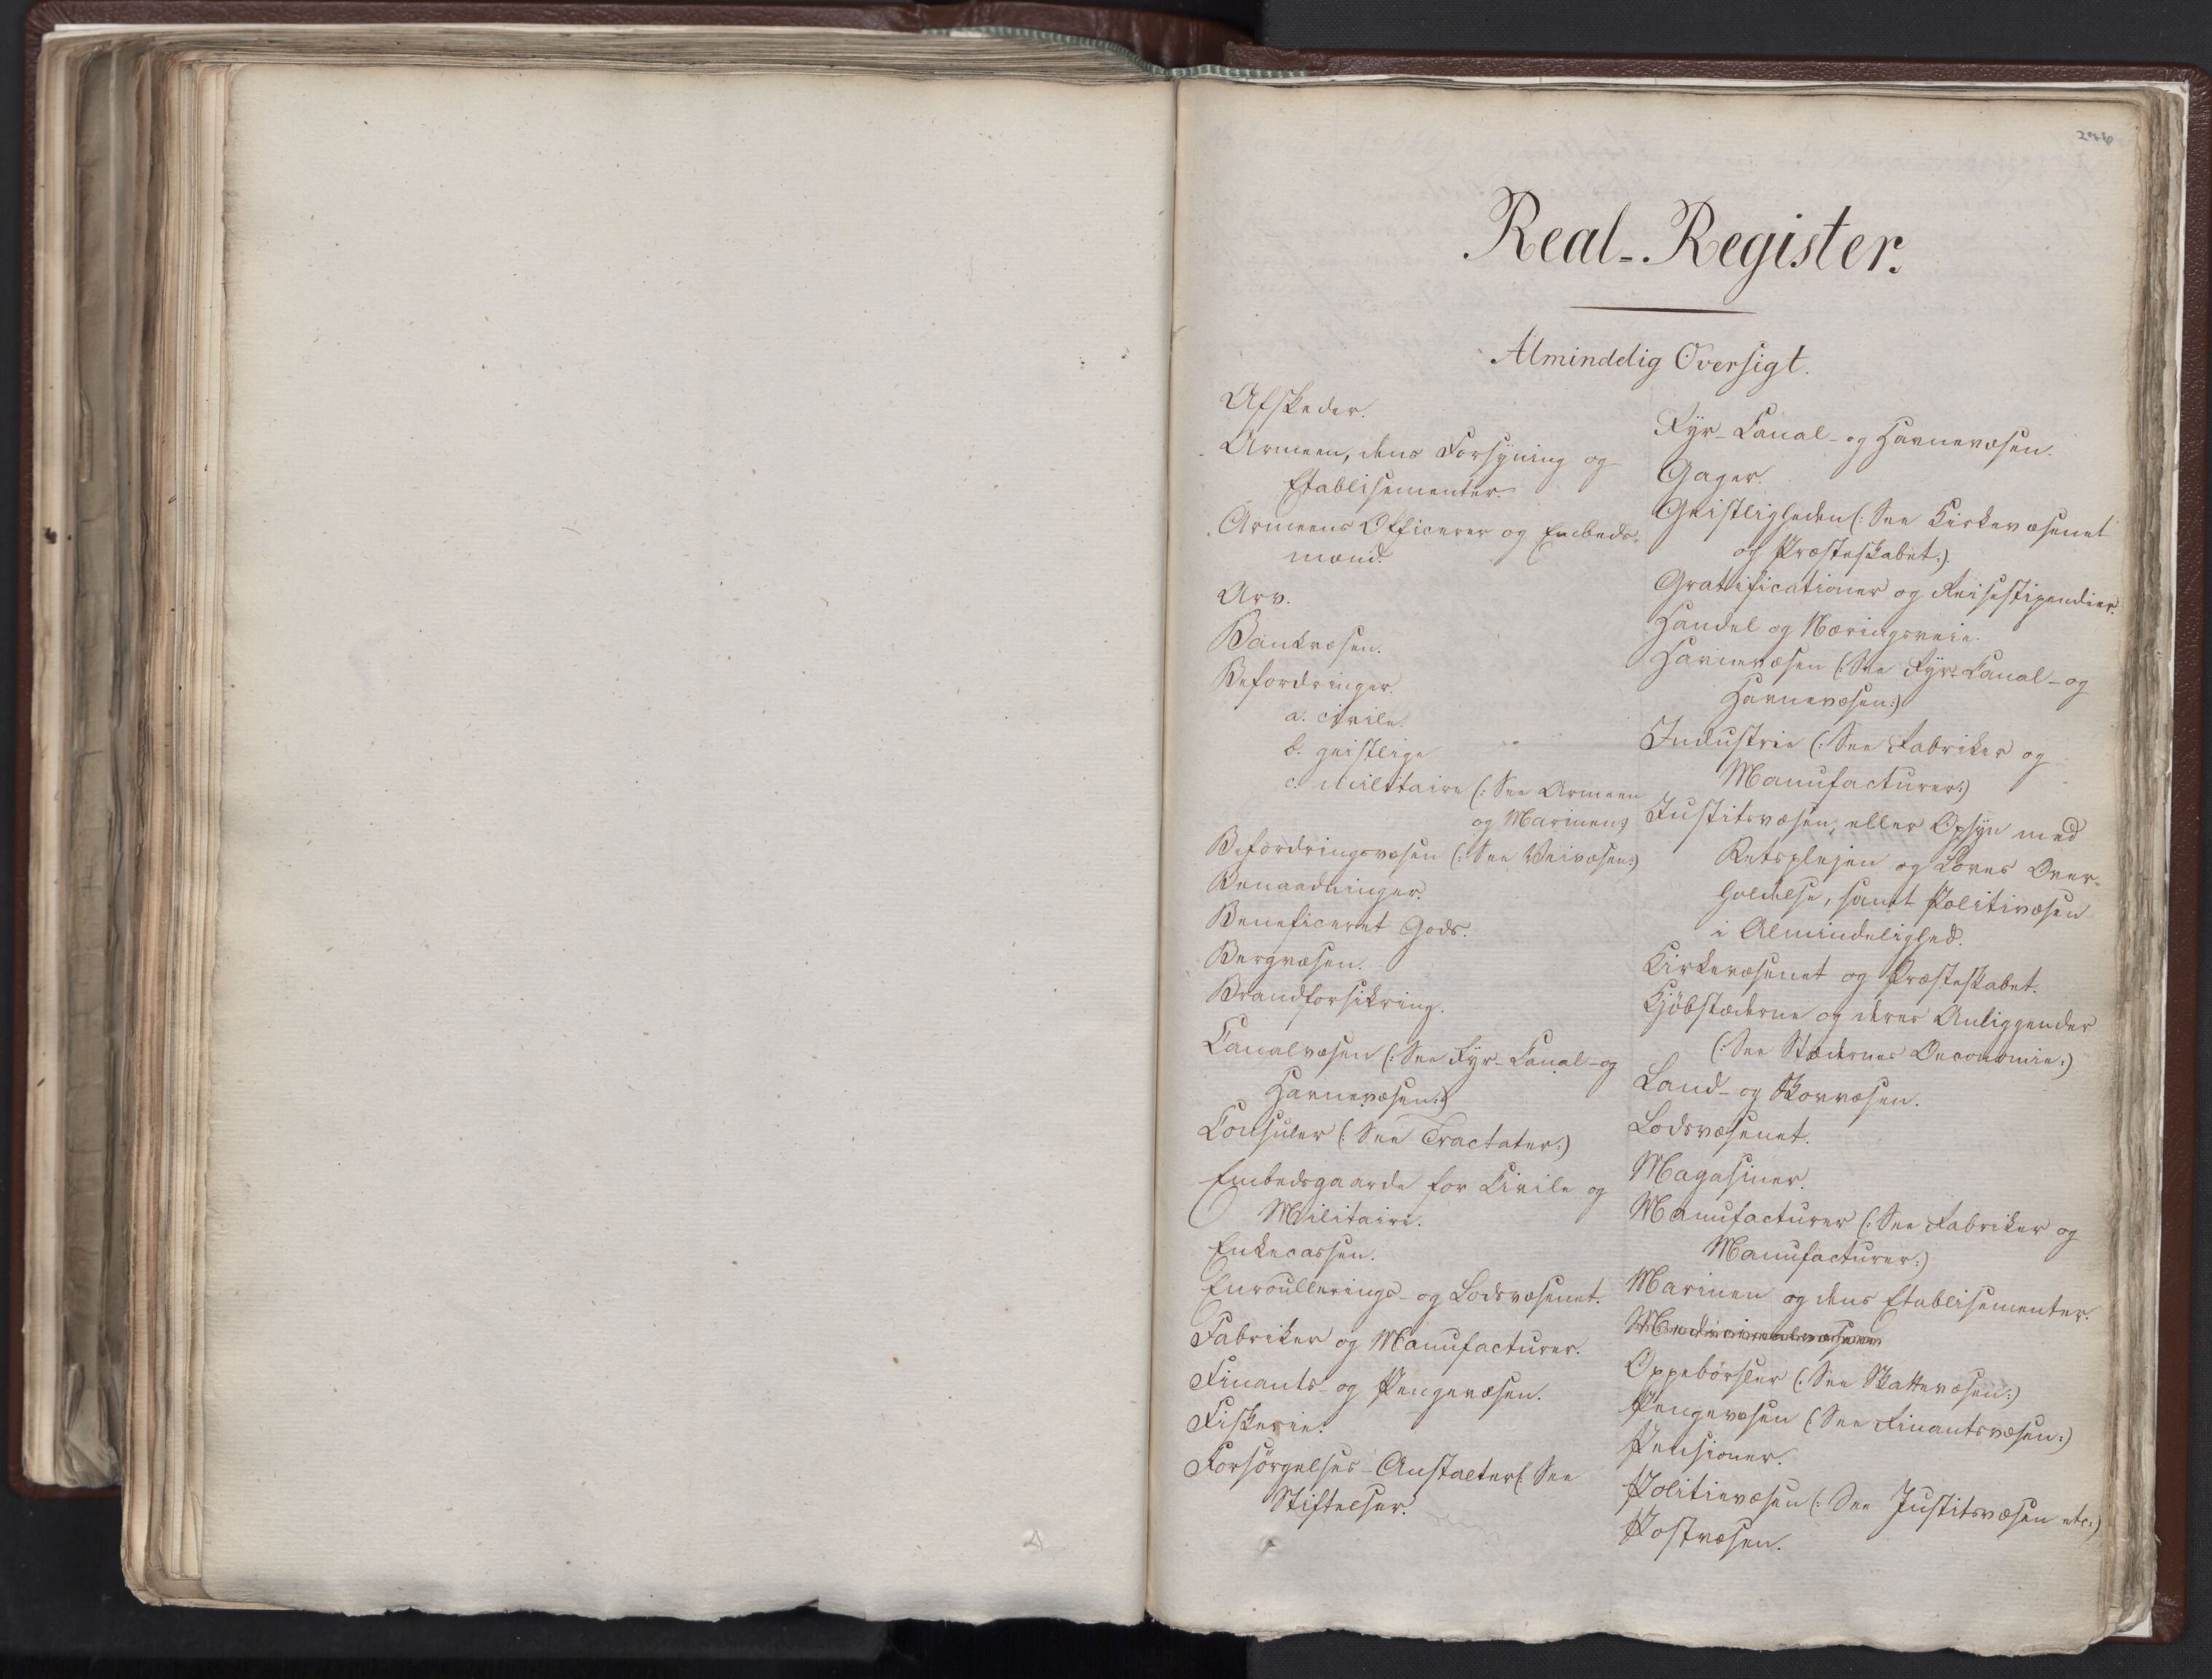 246
Real-Register.
Almindelig Oversigt.
Afskeder.
Armeen, dens Forsyning og
Etablisementer.
Armeens Officerer og Embeds-
mænd.
Arv.
Bankvæsen.
Befordringer.
a. civile.
b. geistlige
c. militaire (: See Armeen
og Marinen:)
Befordringsvæsen (: See Veivæsen:)
Benaadninger.
Beneficeret Gods.
Bergvæsen.
Brandforsikring.
Canalvæsen (: See Fyr- Canal- og
Havnevæsen:)
Consuler (: See Tractater:)
Embedsgaarde for Civile og
Militaire.
Enkecassen.
Enroullerings- og Lodsvæsenet.
Fabriker og Manufacturer.
Finants- og Pengevæsen.
Fiskerie.
Forsörgelses-Anstalter (: See
Stiftelser.
Fyr- Canal- og Havnevæsen.
Gager.
Geistligheden (: See Kirkevæsenet
og Præsteskabet:).
Gratificationer og Reisestipendier.
Handel og Næringsveie.
Havnevæsen (: See Fyr- Canal- og
Havnevæsen:)
Industrie (: See Fabriker og
Manufacturer:)
Justitsvæsen, eller Opsyn med
Retsplejen og Loves Over-
holdelse, samt Politivæsen
i Almindelighed.
Kirkevæsenet og Præsteskabet.
Kjöbstæderne og deres Anliggender
(: See Stædernes Oeconomie:)
Land- og Skovvæsen.
Lodsvæsenet.
Magasiner.
Manufacturer (: See Fabriker og
Manufacturer:)
Marinen og dens Etablisementer.
Medicinalvæsen
Oppebörsler (: See Skattevæsen:)
Pengevæsen (: See Finantsvæsen:)
Pensioner.
Politievæsen (: See Justitsvæsen etc:)
Postvæsen.